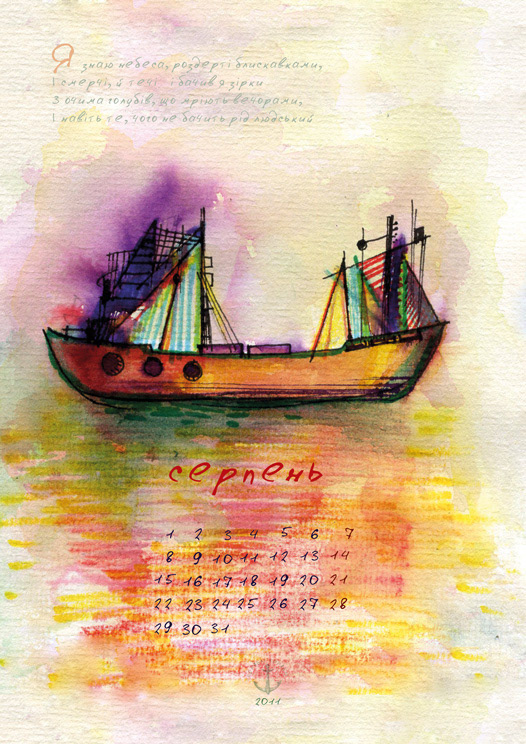 Я знаю небеса, роздерті блискавками,
І смерчі, й течії і бачив я зірки
З очима голубів, що мріють вечорами,
І навіть те, чого не бачить рід людський
серпень
1 2 3 4 5 6 7
8 9 10 11 12 13 14
15 16 17 18 19 20 21
22 23 24 25 26 27 28
29 30 31
2011